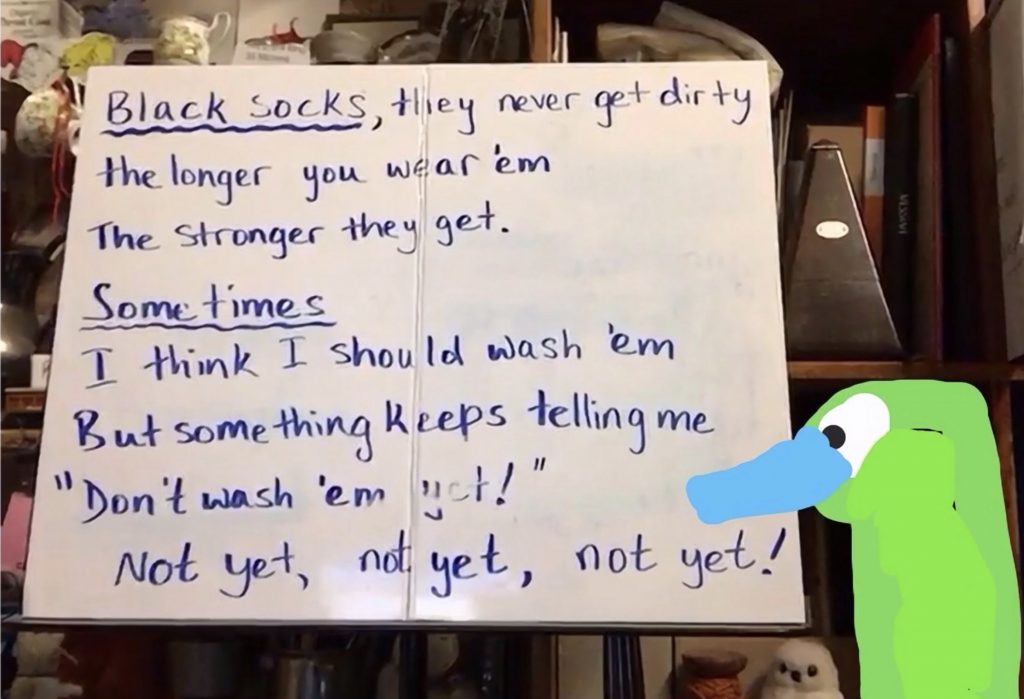 Black socks, they never get dirty
the longer you wear 'em
The stronger they get.
Sometimes
I think I should wash 'em
But something keeps telling me
"Don't wash 'em yet!"
Not yet, not yet, not yet!